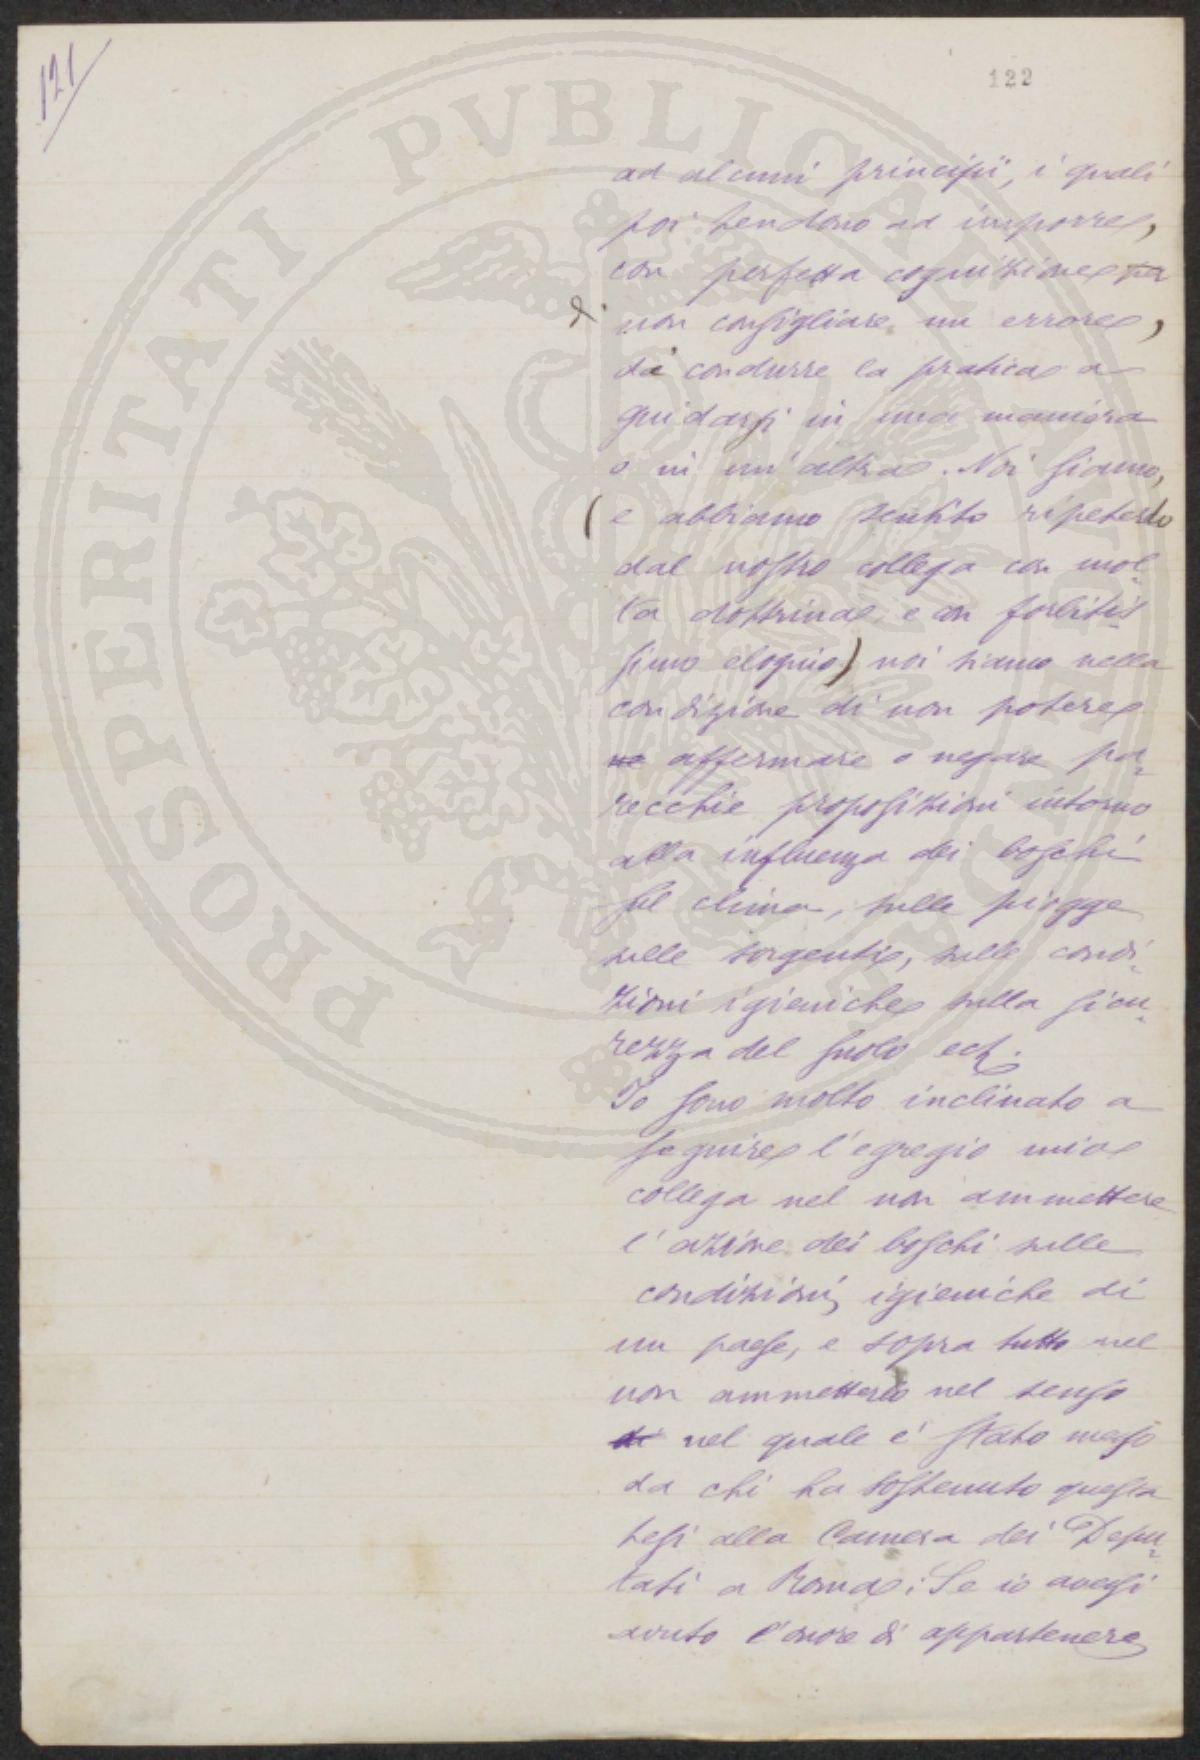 121
122
PROSPERITATI PVBLICAE
ad alcuni principii, i quali
poi tendono ad imporre,
con perfetta cognizione per
di non consigliare un errore,
da condurre la pratica a
guidarsi in una maniera
o in un'altra. Noi siamo,
(e abbiamo sentito ripeterlo
dal nostro collega con mol-
ta dottrina e con forbitis-
simo eloquio) noi siamo nella
condizione di non potere
no affermare o negare pa-
recchie proposizioni intorno
alla influenza dei boschi
sul clima, sulle piogge
sulle sorgenti, sulle condi-
zioni igieniche sulla sicu-
rezza del suolo ect.
Io sono molto inclinato a
seguire l'egregio mio
collega nel non ammettere
l'azione dei boschi sulle
condizioni igieniche di
un paese, e sopra tutto nel
non ammetterlo nel senso
di nel quale e' stato messo
da chi ha sostenuto questa
tesi alla Camera dei Depu-
tati a Roma; Se io avessi
avuto l'onore di appartenere